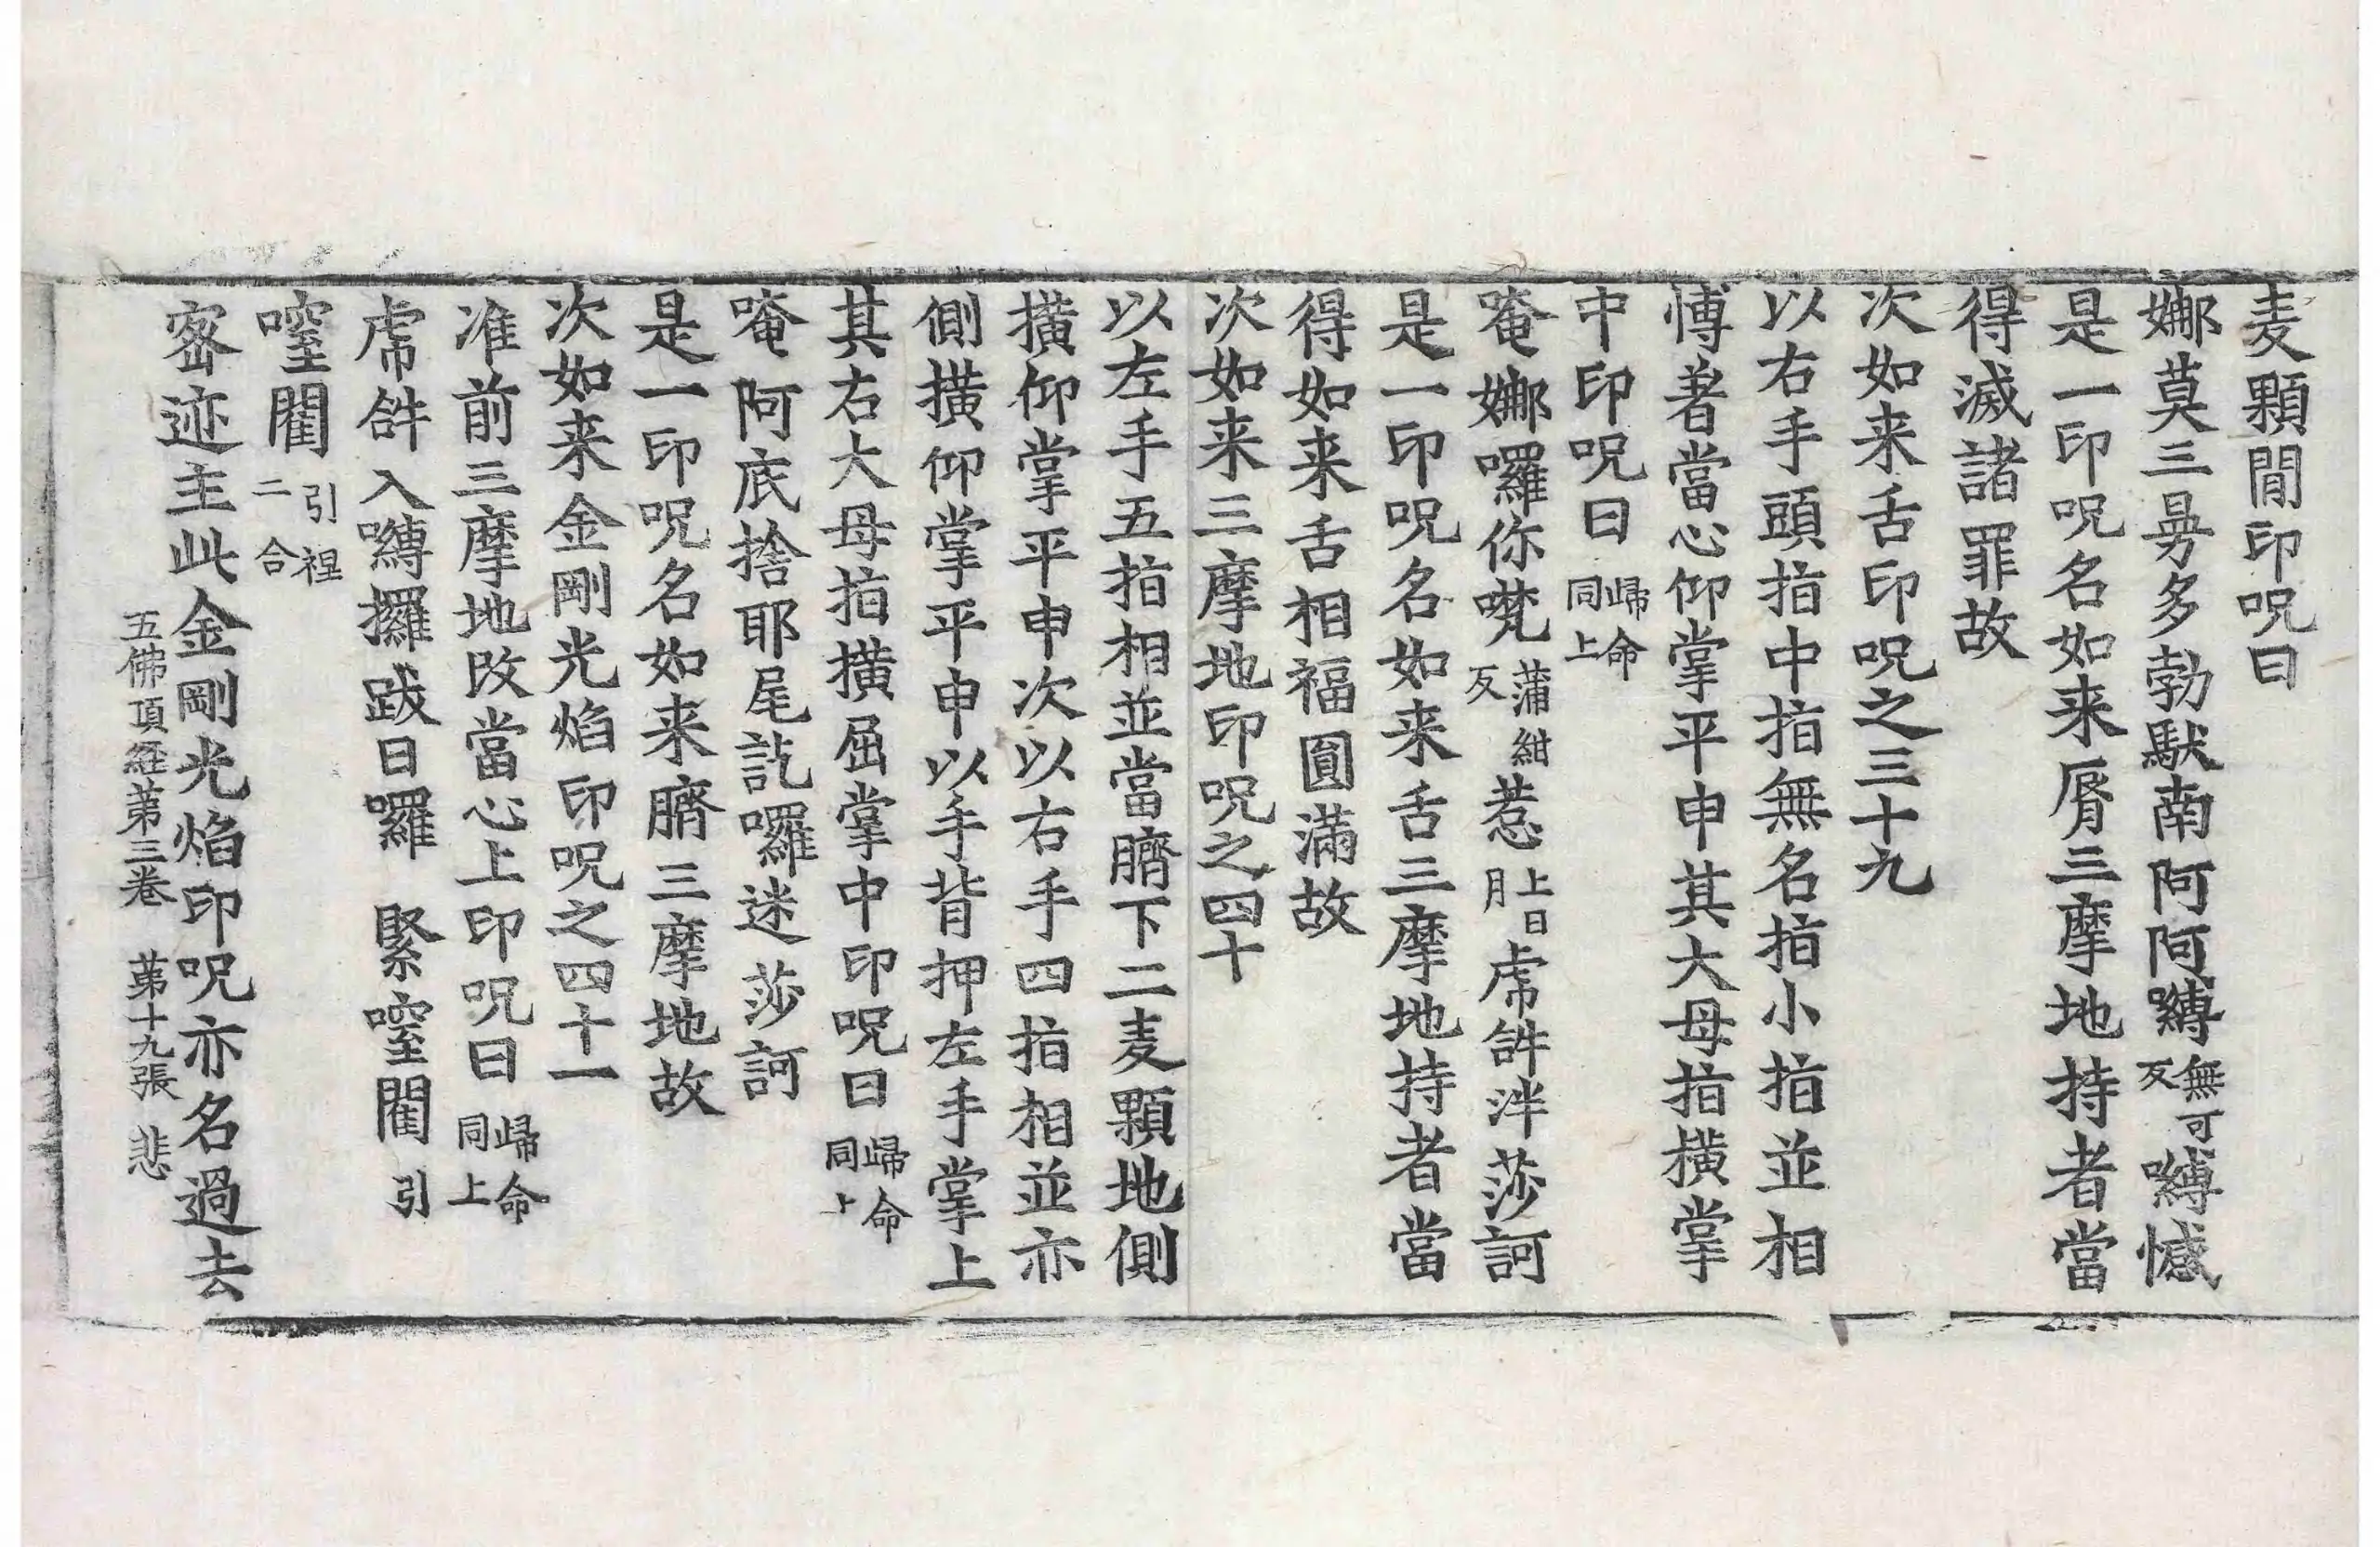 麦顆閒印呪曰
娜莫三曼多勃馱南阿阿嚩無可反嚩憾
是一印呪名如来脣三摩地持者當
得滅諸罪故
次如来舌印呪之三十九
以右手頭指中指無名指小指並相
愽著當心仰掌平申其大母指橫掌
中印呪曰歸命同上
唵娜囉你㘕蒲紺反惹上日月虎𤙖泮莎訶
是一印呪名如来舌三摩地持者當
得如来舌相福圓滿故
次如来三摩地印呪之四十
以左手五指相並當臍下二麦顆地側
撗仰掌平申次以右手四指相並亦
側撗仰掌平申以手背押左手掌上
其右大母指撗屈掌中印呪曰歸命同上
唵阿底捨耶尾訖囉迷莎訶
是一印呪名如来臍三摩地故
次如来金剛光焰印呪之四十一
准前三摩地改當心上印呪曰歸命同上
虎𤙖入嚩攞跋日囉緊窒閣引
嚀閣引裎二合
密迹主此金剛光焰印呪亦名過去
五佛頂經第三卷 第十九張 悲